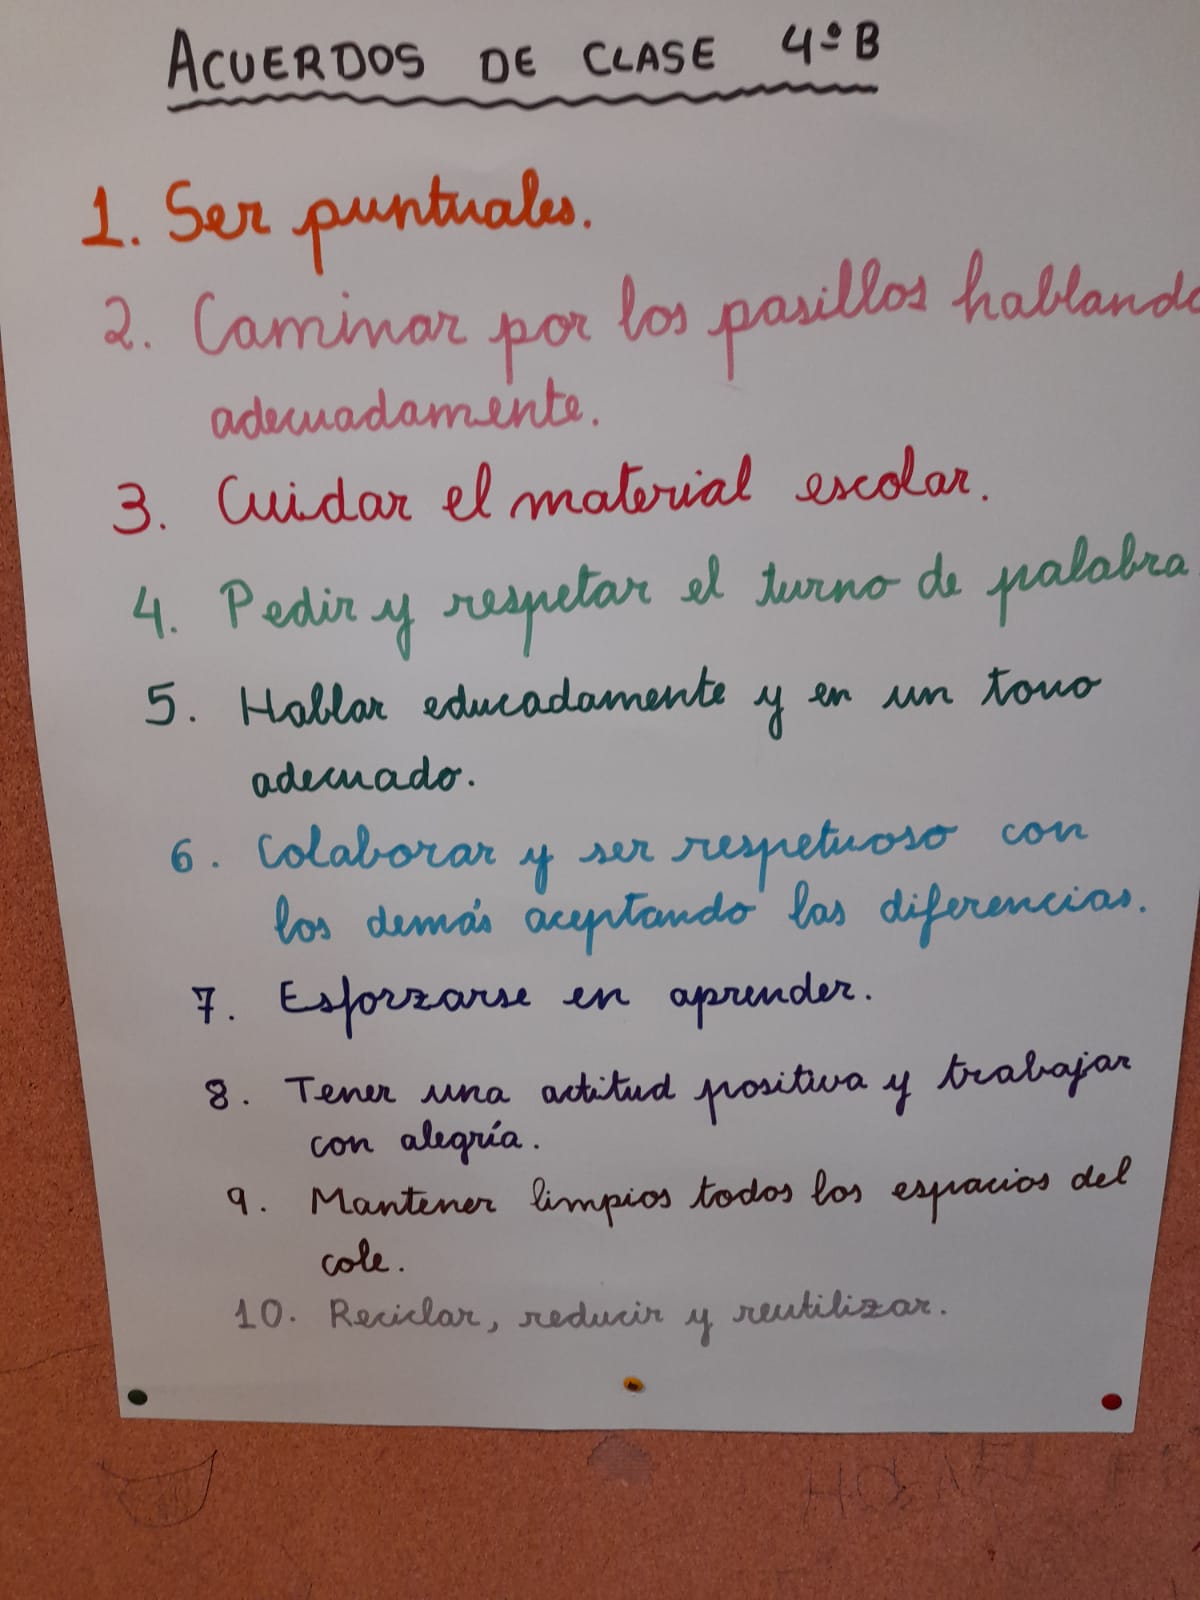 ACUERDOS DE CLASE 4º B
1. Ser puntuales.
2. Caminar por los pasillos hablando
adecuadamente.
3. Cuidar el material escolar.
4. Pedir y respetar el turno de palabra
5. Hablar educadamente y en un tono
adecuado.
6. Colaborar y ser respetuoso con
los demás aceptando las diferencias.
7. Esforzarse en aprender.
8. Tener una actitud positiva y trabajar
con alegría.
9. Mantener limpios todos los espacios del
cole.
10. Reciclar, reducir y reutilizar.